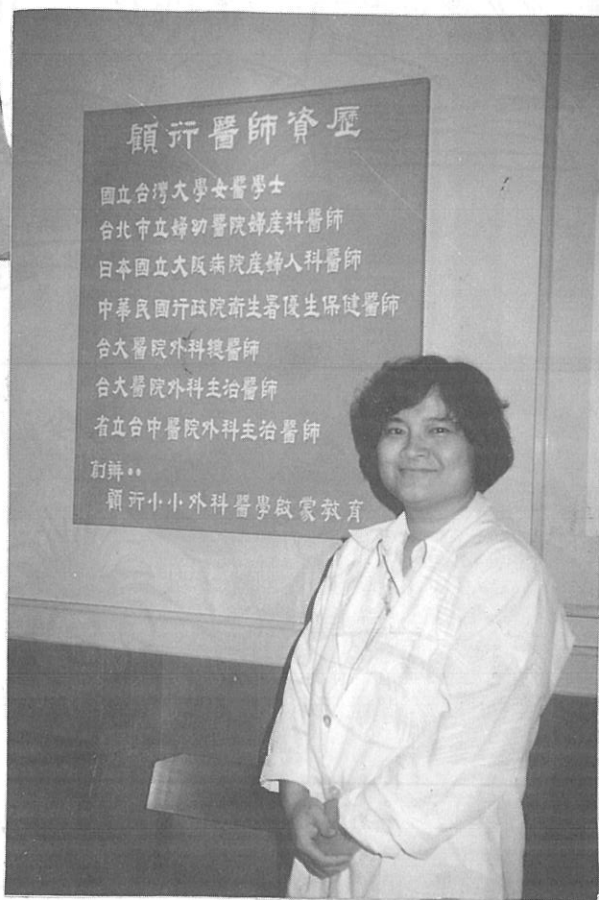 顧衍醫師資歷
國立台灣大學女醫學士
台北市立婦幼醫院婦產科醫師
日本國立大阪病院産婦人科醫師
中華民國行政院衛生署優生保健醫師
台大醫院外科總醫師
台大醫院外科主治醫師
省立台中醫院外科主治醫師
創辦：
顧衍小小外科醫學啟蒙教育